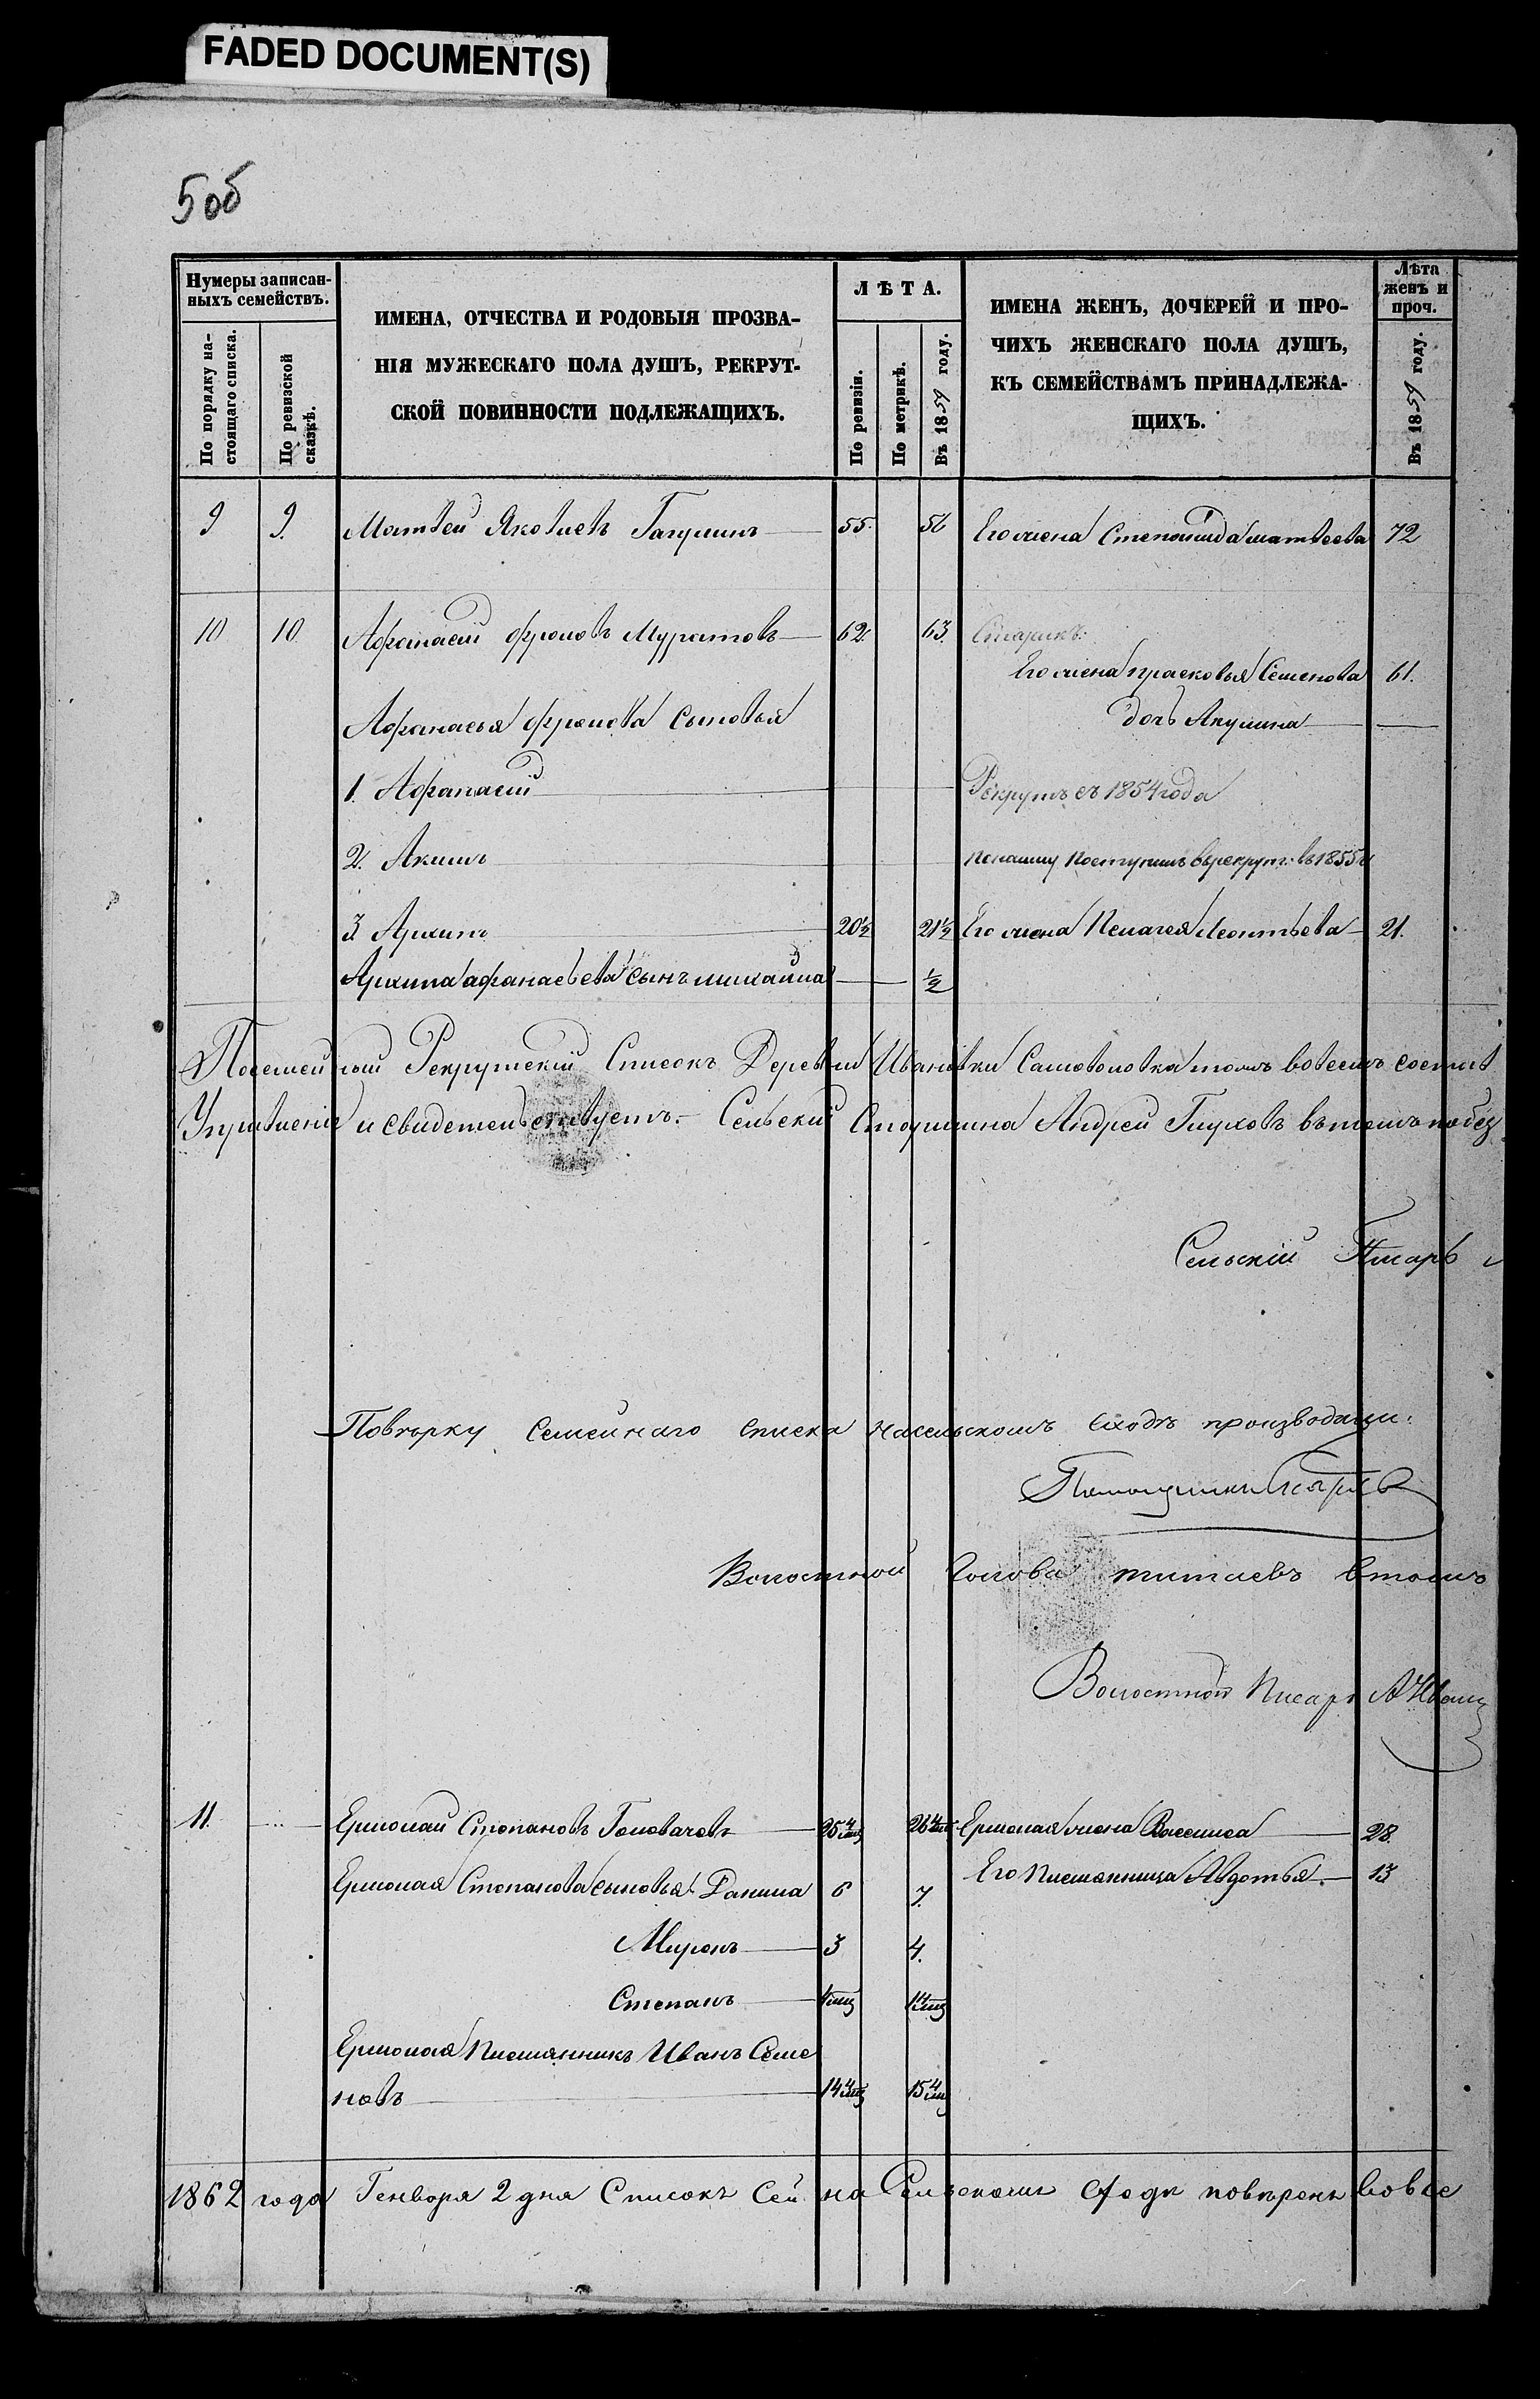 FADED DOCUMENT(S)
5об
Нумеры записан-
ныхъ семействъ.
По порядку на-
стоящаго списка.
По ревизской
сказкѣ.
ИМЕНА, ОТЧЕСТВА И РОДОВЫЯ ПРОЗВА-
НІЯ МУЖЕСКАГО ПОЛА ДУШЪ, РЕКРУТ-
СКОЙ ПОВИННОСТИ ПОДЛЕЖАЩИХЪ.
ЛѢТА.
По ревизіи.
По метрикѣ.
Въ 1859 году.
ИМЕНА ЖЕНЪ, ДОЧЕРЕЙ И ПРО-
ЧИХЪ ЖЕНСКАГО ПОЛА ДУШЪ,
КЪ СЕМЕЙСТВАМЪ ПРИНАДЛЕЖА-
ЩИХЪ.
Лѣта
женъ и
проч.
Въ 1859 году.
9 9. Матвей Яковлевъ 55. 56 Его жена Степонида матвеева 72
10 10. Афанасий фроловъ Муратовъ 62 63. Старикъ.
Его жена прасковья Семенова 61.
Афанасья фролова сыновья дочь Акулина
1. Афанасий Рекрутъ съ 1854 года
2. Акимъ поступилъ в рекрут: въ 1855
3. Архипъ 20½ 21½ Его жена Пелагея Леонтьева 21.
Архипа афанасьева сынъ михайла ½
Посемейный Рекрутский Списокъ Деревни Ивановки во всемъ
Управление и свидетельствуетъ. Сельский Старшина Андрей Глуховъ въ томъ
Сельский Писарь
Повѣрку Семейнаго Списка на сельскомъ Сходѣ производили:
Волостной Голова титаевъ втомъ
Волостной Писарь
11. Ермолай Степановъ Головачевъ 25 4/мц 26 4/мц Ермолая жена Васелиса 28.
Ермолая Степанова сыновья Данила 6 7. Его племянница Авдотья 13
Миронъ 3 4.
Степанъ 4/мц 1 4/мц
Ермолая племянникъ Иванъ Семе
новъ 14 4/мц 15 4/мц
1862 года Генворя 2 дня Списокъ Сей на Сельскомъ Сходе повѣренъ вовсе